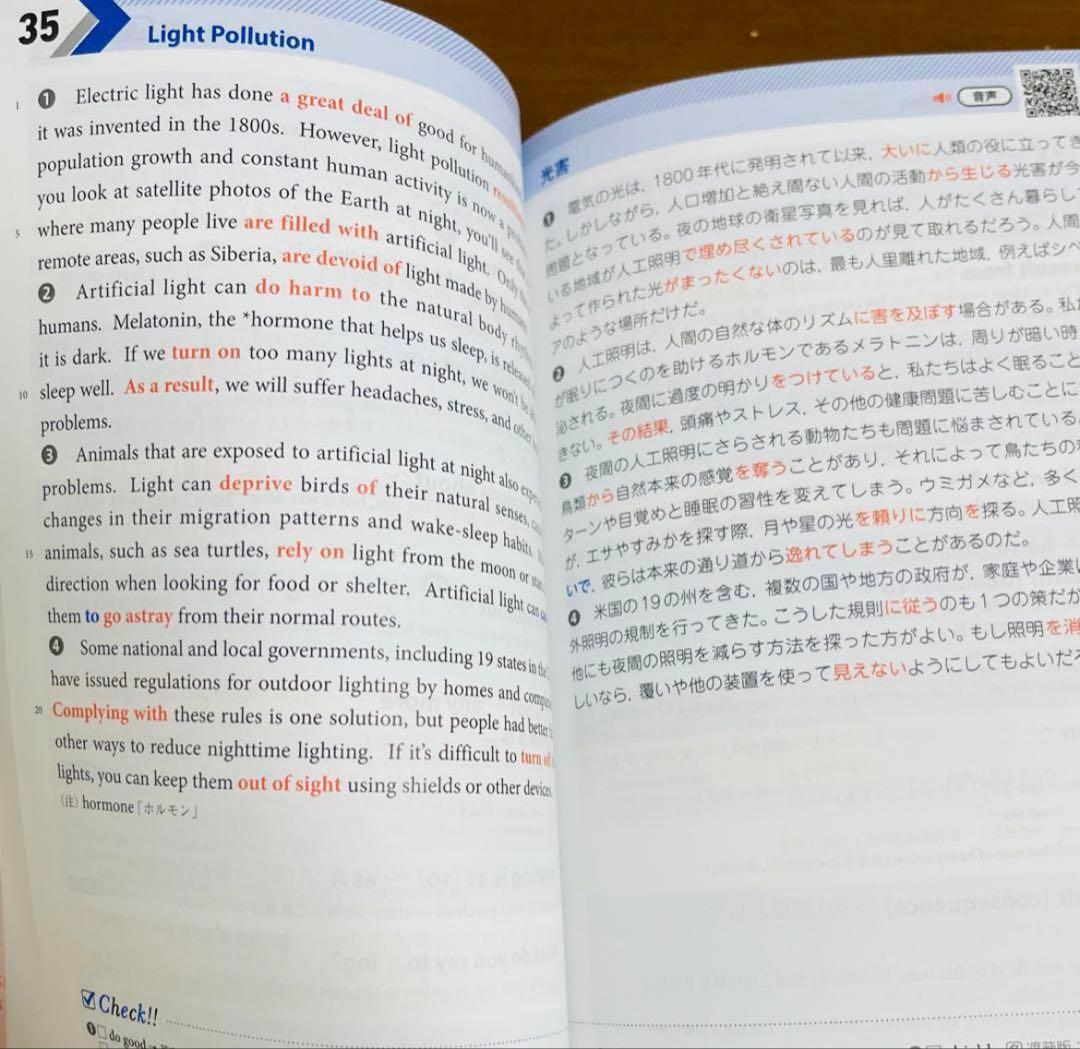 35
Light Pollution
1 ❶ Electric light has done a great deal of good for
it was invented in the 1800s. However, light pollution
population growth and constant human activity is now a
you look at satellite photos of the Earth at night, you'll see
5 where many people live are filled with artificial light. Only
remote areas, such as Siberia, are devoid of light made by
❷ Artificial light can do harm to the natural body
humans. Melatonin, the *hormone that helps us sleep, is
it is dark. If we turn on too many lights at night, we won't be
10 sleep well. As a result, we will suffer headaches, stress, and other
problems.
❸ Animals that are exposed to artificial light at night also
problems. Light can deprive birds of their natural senses,
changes in their migration patterns and wake-sleep habits.
15 animals, such as sea turtles, rely on light from the moon or
direction when looking for food or shelter. Artificial light can
them to go astray from their normal routes.
❹ Some national and local governments, including 19 states in the
have issued regulations for outdoor lighting by homes and
20 Complying with these rules is one solution, but people had better
other ways to reduce nighttime lighting. If it's difficult to turn
lights, you can keep them out of sight using shields or other devices.
(注) hormone「ホルモン」
Check!!
❶ do good
音声
光害
❶ 電気の光は，1800年代に発明されて以来，大いに人類の役に立ってき
た。しかしながら，人口増加と絶え間ない人間の活動から生じる光害が今
問題となっている。夜の地球の衛星写真を見れば，人がたくさん暮らして
いる地域が人工照明で埋め尽くされているのが見て取れるだろう。人間
よって作られた光がまったくないのは，最も人里離れた地域，例えばシベ
アのような場所だけだ。
❷ 人工照明は，人間の自然な体のリズムに害を及ぼす場合がある。私た
が眠りにつくのを助けるホルモンであるメラトニンは，周りが暗い時
泌される。夜間に過度の明かりをつけていると，私たちはよく眠ること
きない。その結果，頭痛やストレス，その他の健康問題に苦しむことに
❸ 夜間の人工照明にさらされる動物たちも問題に悩まされている。
鳥類から自然本来の感覚を奪うことがあり，それによって鳥たちの
ターンや目覚めと睡眠の習性を変えてしまう。ウミガメなど，多く
が，エサやすみかを探す際，月や星の光を頼りに方向を探る。人工照
いで，彼らは本来の通り道から逸れてしまうことがあるのだ。
❹ 米国の19の州を含む，複数の国や地方の政府が，家庭や企業
外照明の規制を行ってきた。こうした規則に従うのも1つの策だが
他にも夜間の照明を減らす方法を探った方がよい。もし照明を消
しいなら，覆いや他の装置を使って見えないようにしてもよいだろ